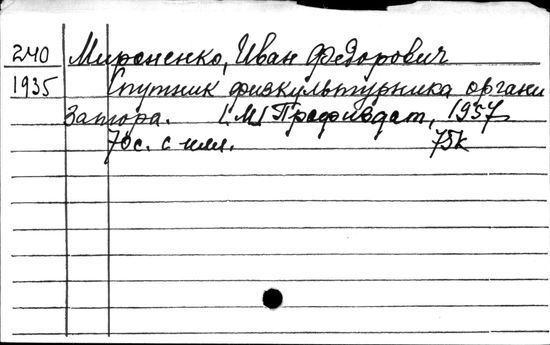 240 Мироненко, Иван Федорович
1935 Спутник физкультурника органи
затора. [М] Профиздат, 1957
70с. с илл. 75к